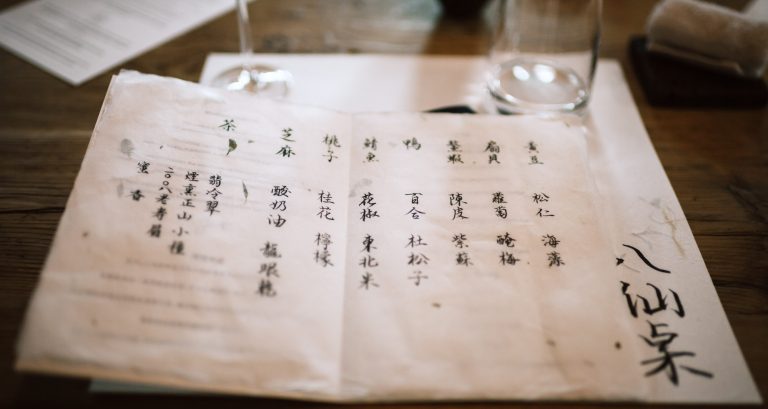 八仙桌
黃豆 松仁 海藻
扇貝 蘿蔔 醃梅
螯蝦 陳皮 紫蘇
鴨 百合 杜松子
鯖魚 花椒 東北米
桃子 桂花 檸檬
芝麻 酸奶油 龍眼乾
茶 翡冷翠
煙熏正山小種
二〇〇八老壽眉
蜜香